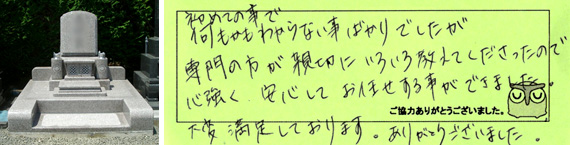 初めての事で
何もかもわからない事ばかりでしたが
専門の方が親切にいろいろ教えてくださったので
心強く、安心してお任せする事ができました。
ご協力ありがとうございました。
大変満足しております。ありがとうございました。